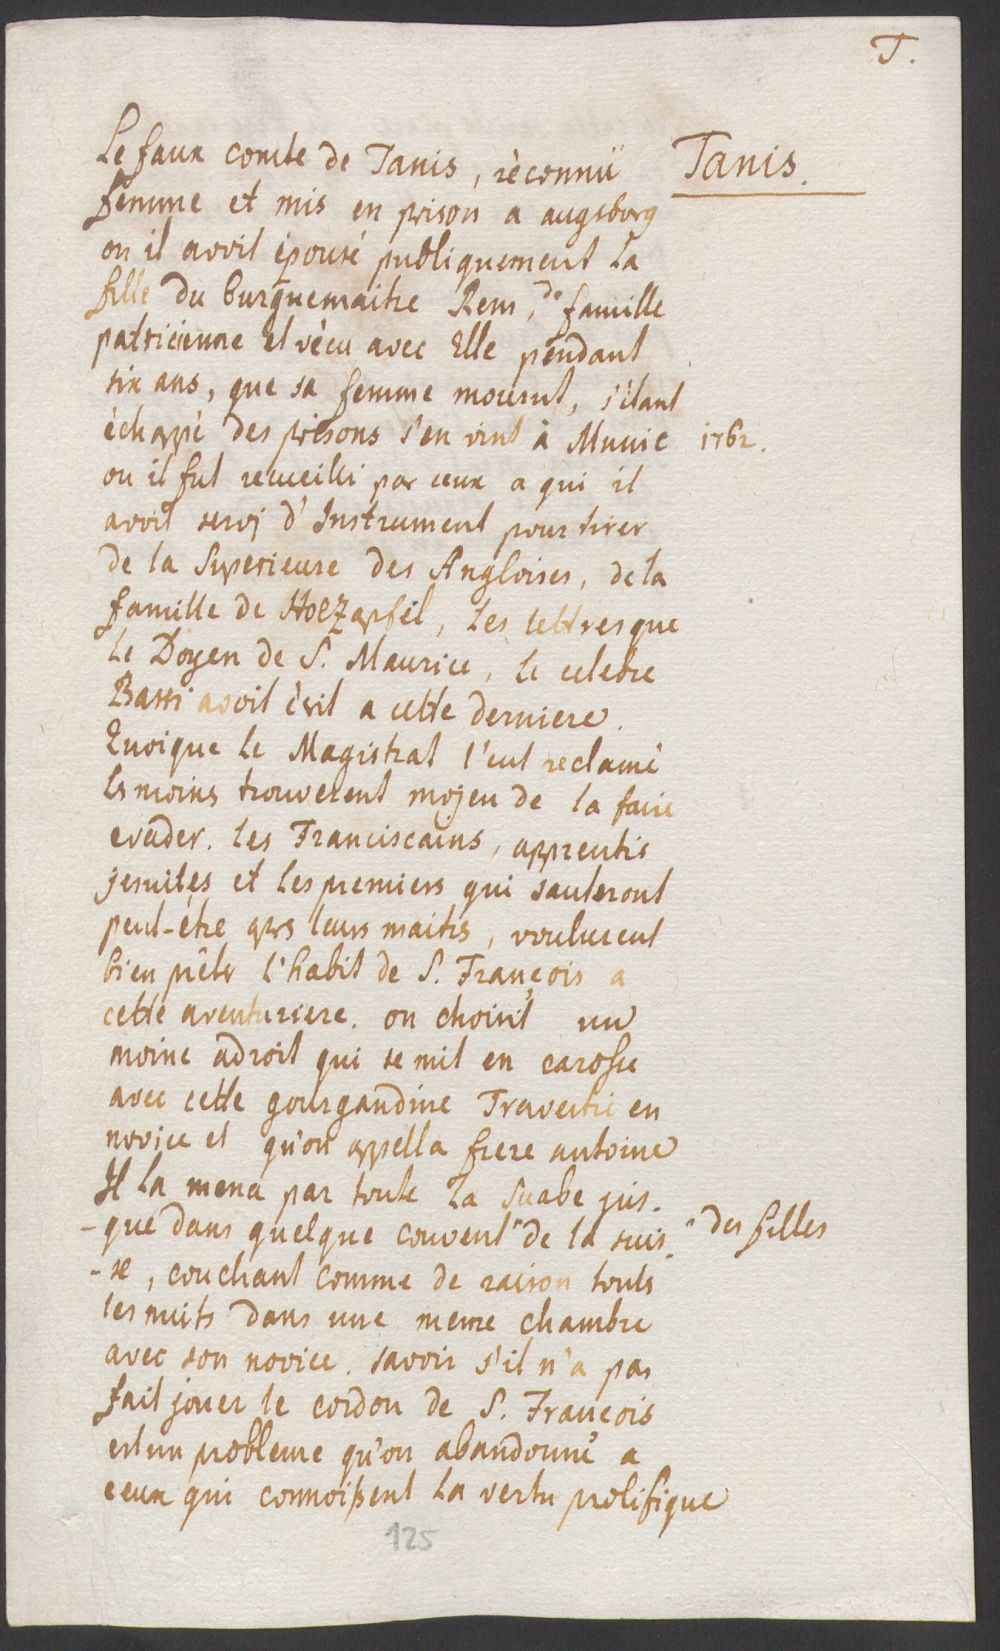 T.
Tanis.
Le faux comte de Tanis, rèconnü
femme et mis en prison a augsborg
ou il avoit épousé publiquement la
fille du burguemaitre Rem, de famille
patricienne et vècu avec Elle pendant
six ans, que sa femme mourut, s'étant
èchappé des prisons s'en vint à Munic
1762.
ou il fut recueilli par ceux a qui il
avoit servi d'Instrument pour tirer
de la Superieure des Angloises, de la
famille de Holzapfel, les lettres que
le Doyen de S. Maurice, le celebre
Bassi avoit ècrit a cette derniere.
Quoique le Magistrat l'eut reclamé
les moines trouverent mojen de la faire
evader. les Franciscains, apprentis
jesuites et les premiers qui sauteront
peut-étre aprs leurs maitrs, voulurent
bien prêtr l'habit de S. François a
cette aventuriere. on choisit un
moine adroit qui se mit en carosse
avec cette gourgandine Travestie en
novice et qu'on appella frere antoine
Il la mena par toute la Suabe jus-
-que dans quelque couvent " de la suis-
" des filles
-se, couchant comme de raison touts
les nuits dans une meme chambre
avec son novice. savoir s'il n'a pas
fait jouer le cordon de S. François
est un probleme qu'on abandonne a
ceux qui connoißent la vertu prolifique
125